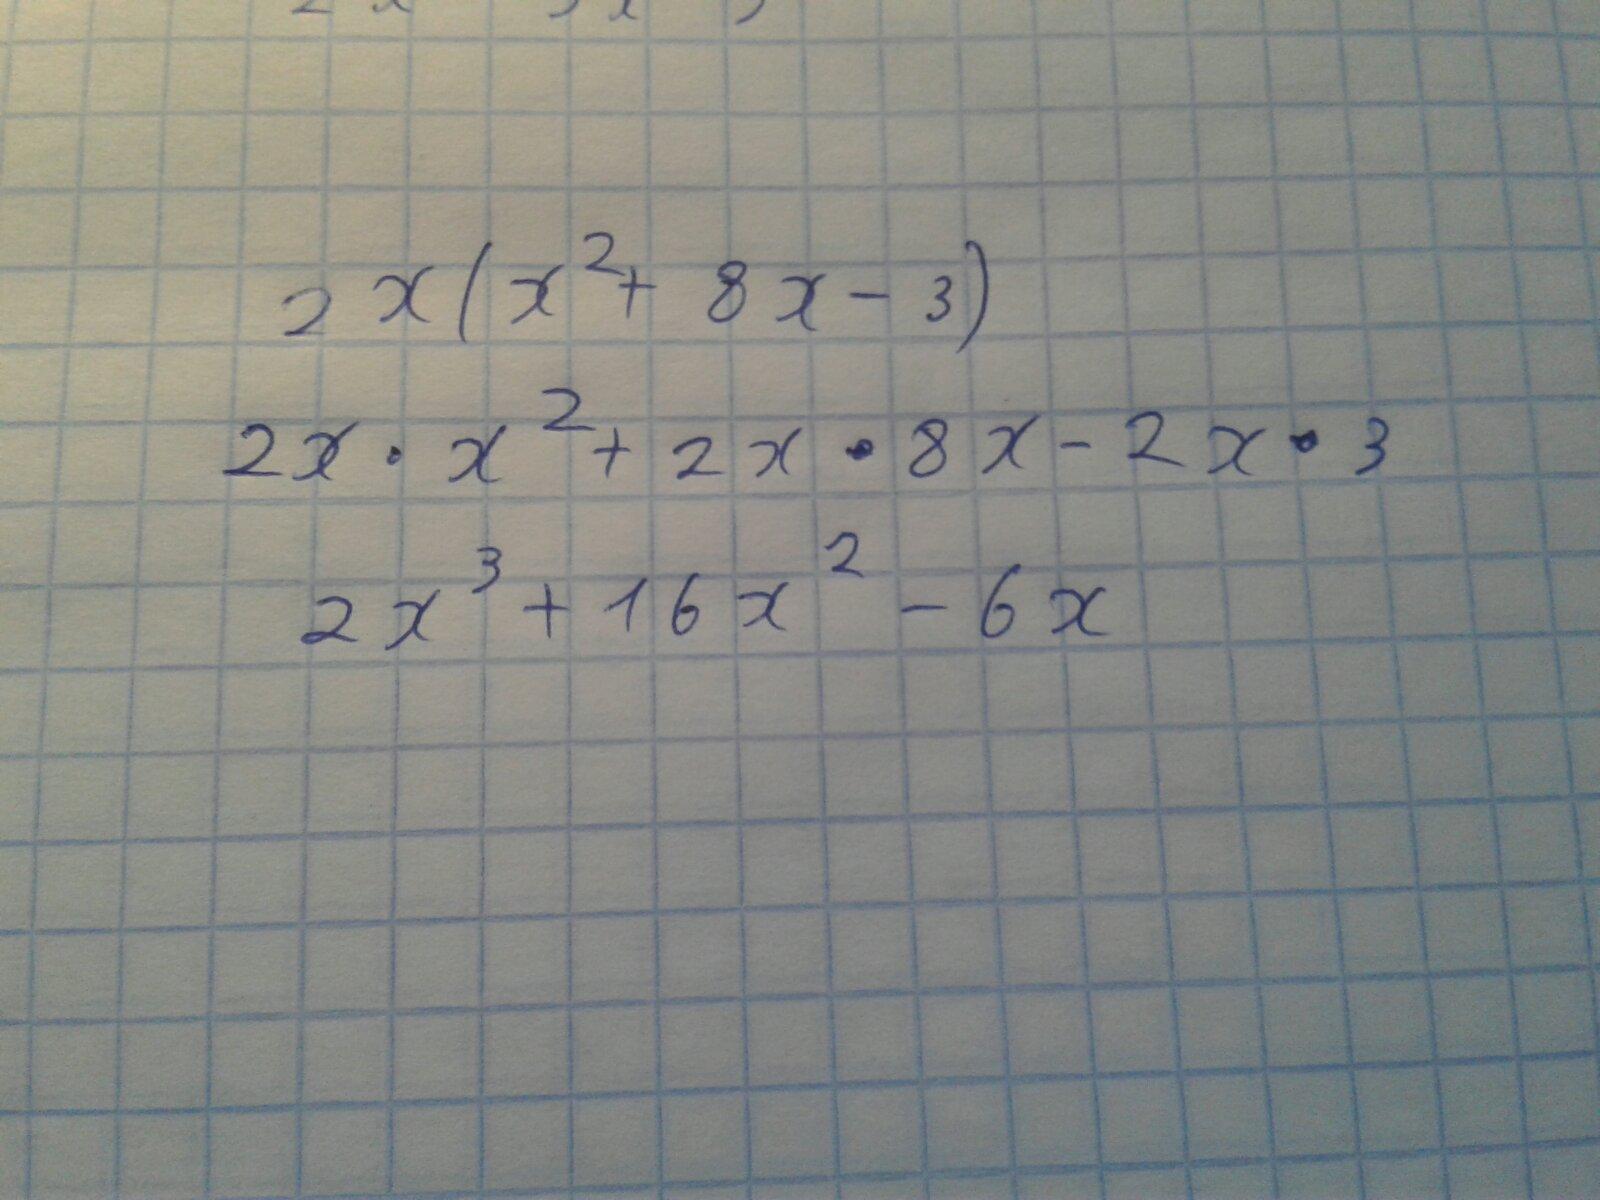 2x(x²+8x-3)
2x·x²+2x·8x-2x·3
2x³+16x²-6x